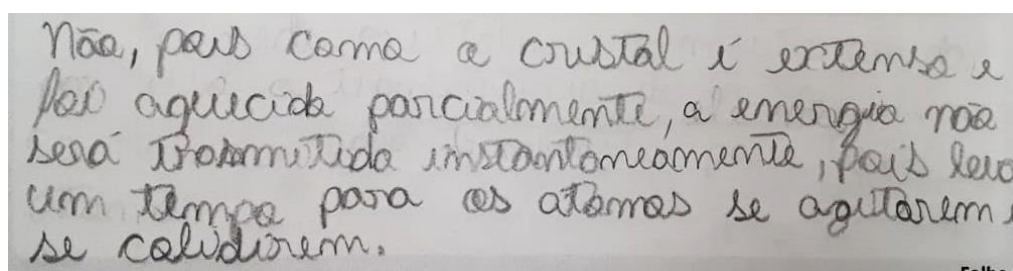 Não, pois como o cristal é extenso e
foi aquecido parcialmente, a energia não
será transmitida instantaneamente, pois leva
um tempo para os átomos se agitarem,
se colidirem.
Folha